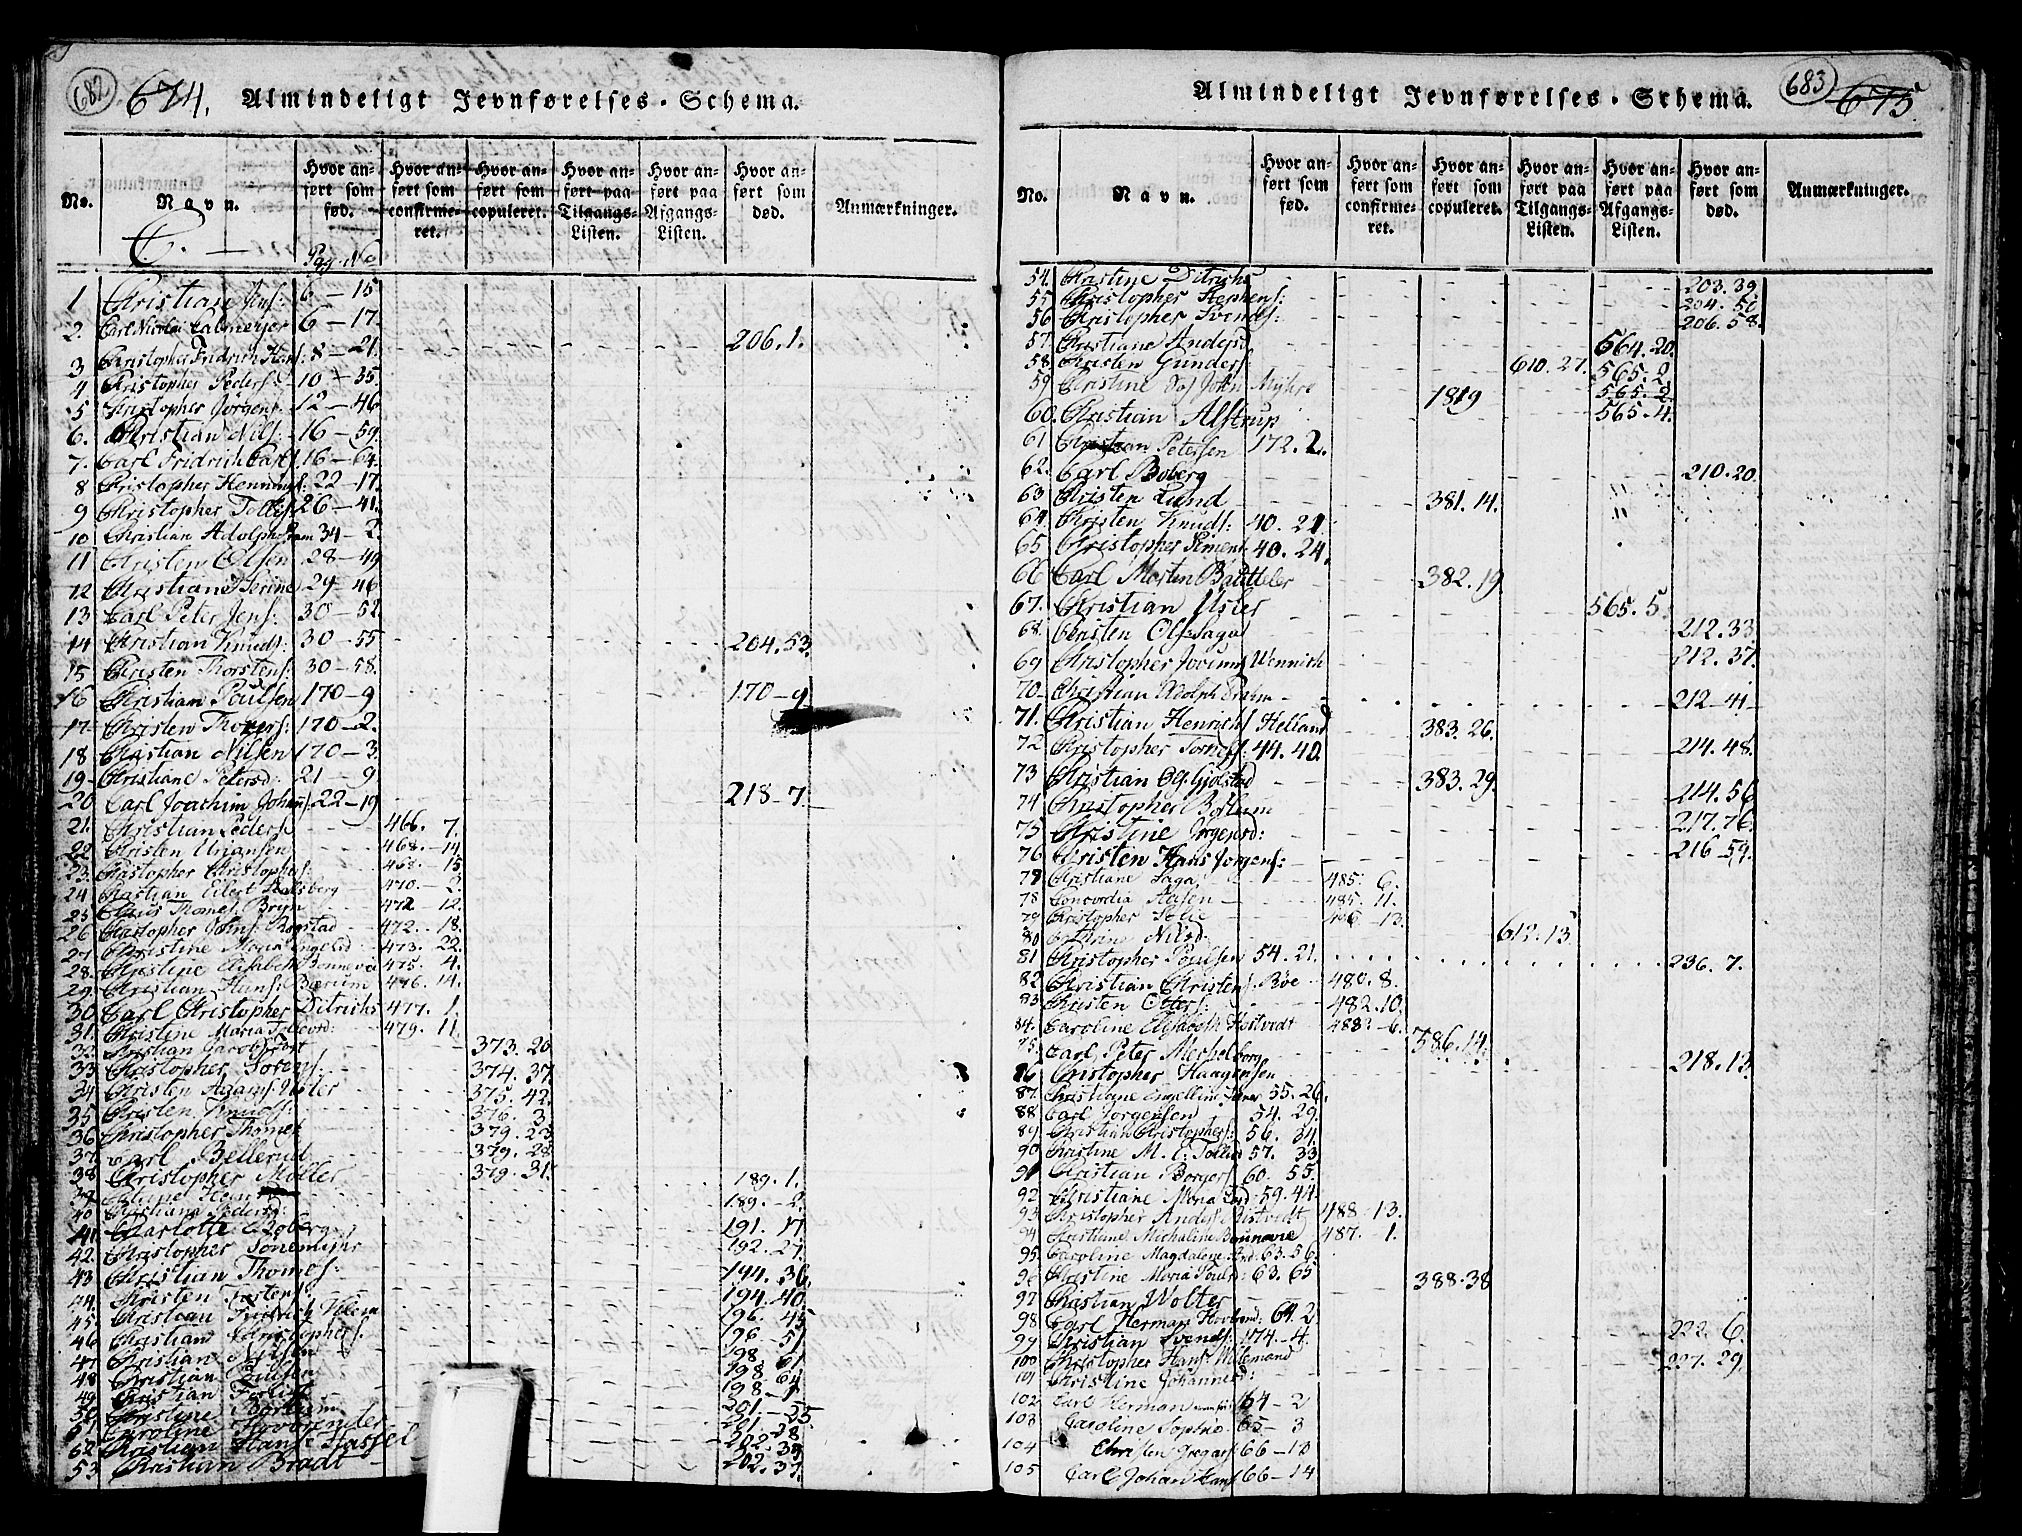 682 674. Almindeligt Jevnførelses-Schema.
No. Navn. Hvor anført som fød. Hvor anført som confirmeret. Hvor anført som copuleret. Hvor anført paa Tilgangs-Listen. Hvor anført paa Afgangs-Listen. Hvor anført som død. Anmærkninger.
C. Pag. No
1 Christian Jens: 6 - 15
2. Carl Nicolai Calmeyer 6 - 17.
3 Christopher Fridrich Hans: 8 - 21. 206. 1.
4 Christopher Peders 10 - 35.
5 Christopher Jörgens: 12 - 46
6. Christian Nils: 16 - 59.
7. Carl Fridrich Carls 16 - 64.
8 Christopher Hennings: 22 - 17.
9 Christopher Tollefs 26 - 41.
10 Christian Adolph Pram 34 - 2.
11 Christen Olsen 28 - 49
12 Christiane Serine 29 - 46
13 Carl Peter Jens: 30 - 52
14 Christian Knuds: 30 - 55 204. 53.
15 Christen Thorstens: 30 - 58.
16 Christian Poulsen 170 - 9 170 - 9
17 Christen Thoræs: 170 - 2.
18 Christian Nilsen 170 - 3
19 Christiane Petersd: 21 - 9
20 Carl Joachim Johans: 22 - 19 218 - 7
21. Christian Peders 466. 7.
22 Christen Uriansen 468. - 14
23. Christopher Christophers: 468. 15
24 Christian Eilert 470. - 2.
25 Claus Thomes. Bryn 472 - 12.
26 Christopher Jens: Rogstad 472. - 18.
27. Christine Maria Engelsd 473. 22.
28. Christine Elisabeth Bonnevie 475. 4.
29. Christian Hans: Bærum 476. 14.
30 Carl Christopher Ditrichs 477. 1.
31. Christine Maria Tollevsd: 479. 11.
32. Christian Jacob Tost 373. 20
33 Christopher Sorens: 374. 37.
34 Christen Adams: Usler 375. 42.
35 Christen Knuds: 376. 3
36 Christopher Thomes 379. 23
37. Carl Bellerud 379. 28
38 Christopher Möller 379. 31.
39 189. 1.
40 Christiane Peders: 189. - 2.
41 Charlotte Choberg 191. 17
42. Christopher Tönemyhr 192. 27
43 Christian Thomes: 194. 36.
44. Christen Torstens: 194. 40.
45 Christian Fridrich 196. 45
46 Christiane Christophers: 196 - 51
47 Christian Nilsen 198. 61
48 Christian Poulsen 198. 64
49. Christian 198 - 7
50 Christine 201 - 25.
51 Caroline 201. 28
52 Christian Hans: Hassel 202. 33
53 Christian Bradt - 202. 37.
Almindeligt Jevnførelses-Schema. 683 675.
No. Navn. Hvor anført som fød. Hvor anført som confirmeret. Hvor anført som copuleret. Hvor anført paa Tilgangs-Listen. Hvor anført paa Afgangs-Listen. Hvor anført som død. Anmærkninger.
54. Christine Ditrichs 203. 39
55 Christopher Stephens: 204. 51
56 Christopher Svends: 206. 58.
57. Christiane Andersd 564. 20.
58. Christen Gunders 610. 27. 565. 2
59 Christine Sof John Myhre 1819 565. 2
60. Christian Alstrup 565. 4.
61 Christian Petersen 172. 2.
62. Carl Boberg 210. 20.
63 Christen Lund 381. 14.
64. Christen Knuds: 40. 21
65 Christopher Simens 40. 24.
66 Carl Morten Bætteler 382. 19
67. Christian Usler 565. 5.
68. Christen Ols: Saga 212. 33
69 Christopher Jovenus Wennich 212. 37.
70 Christian Adolph Pram 212 - 41 -
71. Christian Henrich Helland 383. 26.
72 Christopher Torres 44. 40. 214. 48.
73 Christian Og. Gjölstad 383. 29.
74 Christopher Bothum 214. 56
75 Christine Jorgensd: 217. 76.
76 Christen Hans Jorgens: 216 - 59.
77 Christiane Saga 485. 6.
78 Concordia Aasen 485. 11.
79 Christopher Solie 486 - 13.
80 Cathrine Nilsd. 612. 13.
81 Christopher Poulsen 54. 21. 236. 7.
82 Christian Christens. Böe 480. 8.
83. Christen Otters: 482. 10.
84. Caroline Elisabeth Hestvedt 482 - 6.
75. Carl Peter Mechelborg 586. 14.
86 Christopher Haagensen 218. 13.
87. Christiane Engelline 55. 26.
88. Carl Jorgensen 54. 29.
89 Christian Christophers: 56. 34.
90 Christine M. C. Tollevsd 57. 33.
91 Christian Börges: 60. 55.
92 Christiane Maria 59. 44.
93 Christopher Anders: Hestvedt 488. 13.
94 Christiane Michaline Bonnevie 487. - 1.
95. Caroline Magdalene 63. 56.
96 Christine Maria Pouls: 63. 65
97 Christian Wolter 388. 38
98 Carl Herman Hovbrend: 64. 2
99 Christian Svends: 174. - 4. 222. 6.
100 Christopher Hans: Wilemand 227. 29.
101 Christine Johannesd:
102 Carl Herman 64 - 2
103 Caroline Sophie 65 - 3
104 Christen Gregers 66 - 10
105 Carl Johan Hans 66 - 14